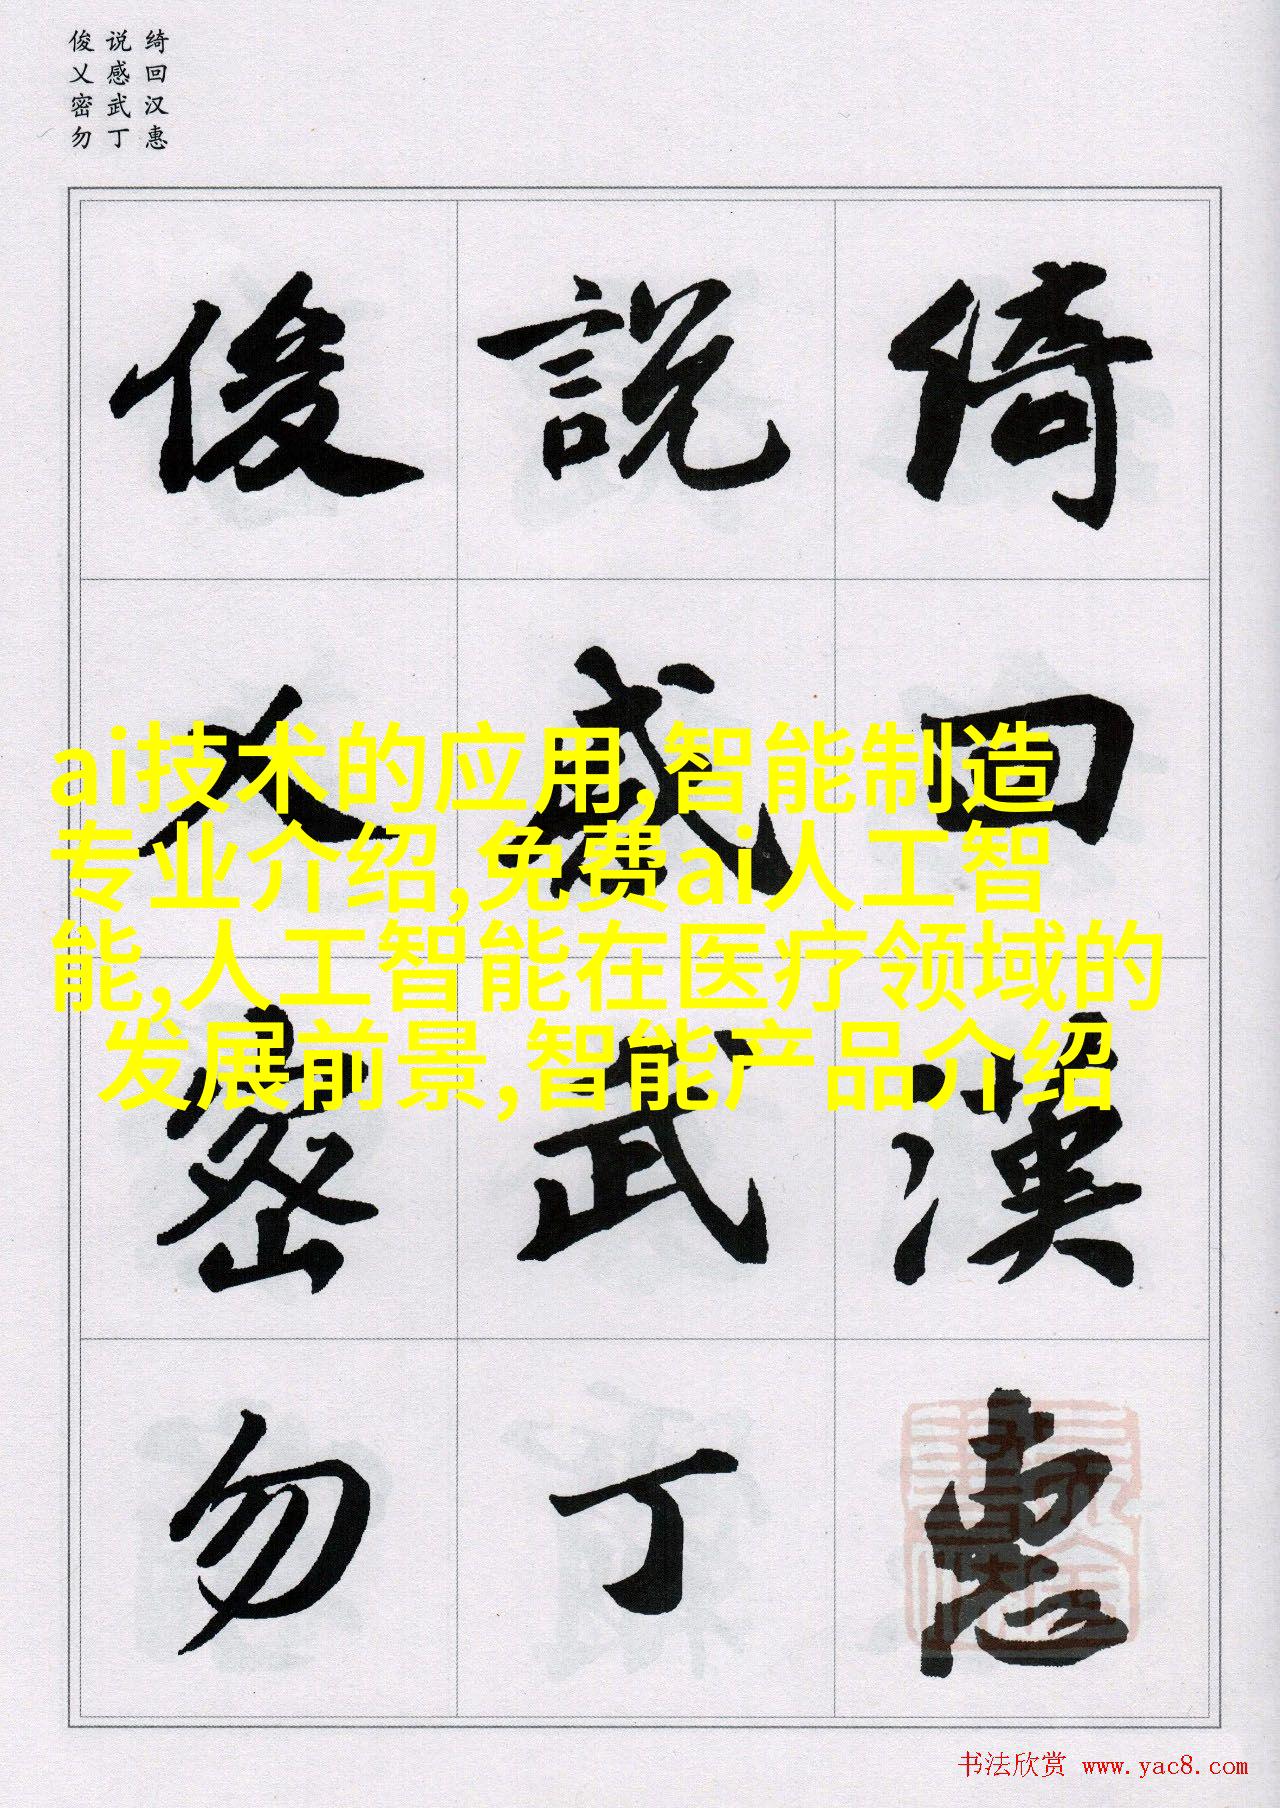 绮回汉惠
说感武丁
俊乂密勿
綺回漢惠
説感武丁
俊乂密勿
ai技术的应用,智能制造
专业介绍,免费ai人工智
能,人工智能在医疗领域的
发展前景,智能产品介绍
书法欣赏 www.yac8.com